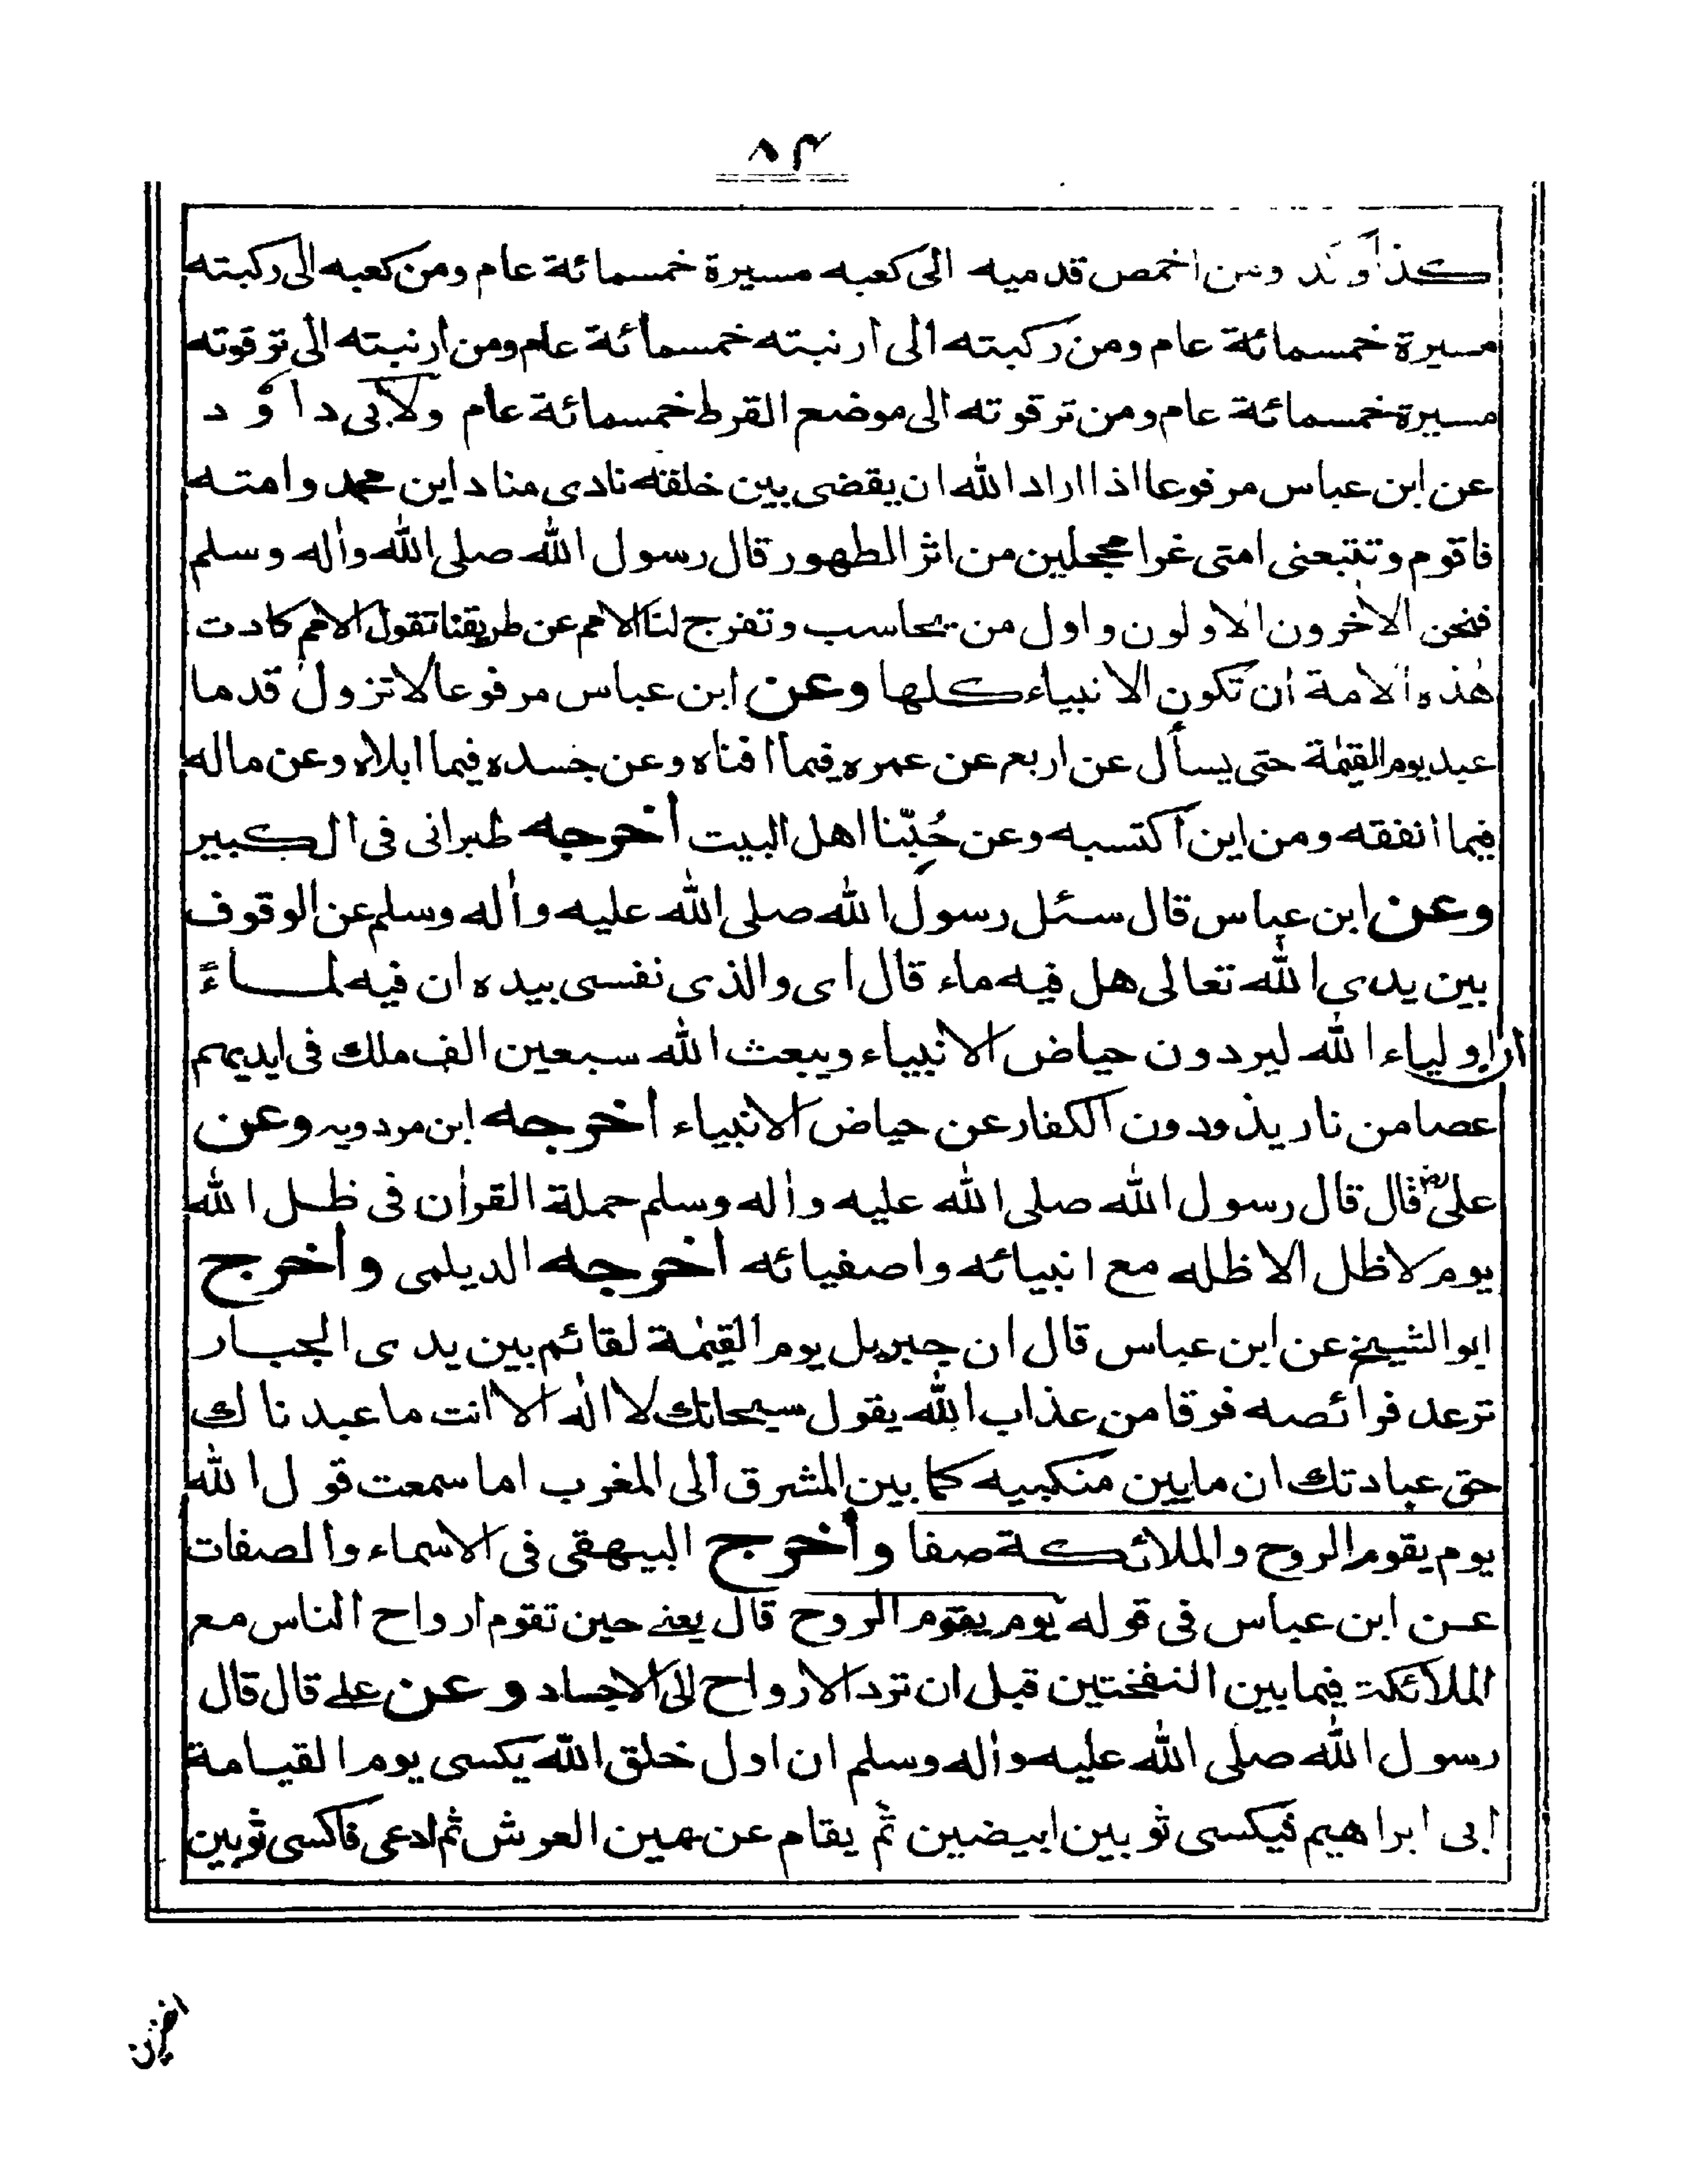 ٨٤
كذا وكذ ومن اخمص قدميه الى كعبه مسيرة خمسمائة عام ومن كعبه الى ركبته
مسيرة خمسمائة عام ومن ركبته الى ارنبته خمسمائة عام ومن ارنبته الى ترقوته
مسيرة خمسمائة عام ومن ترقوته الى موضع القرط خمسمائة عام ولابى داؤد
عن ابن عباس مرفوعا اذا اراد الله ان يقضى بين خلقه نادى مناد اين محمد وامته
فاقوم وتتبعنى امتى غرا محجلين من اثر الطهور قال رسول الله صلى الله واٰله وسلم
فنحن الاٰخرون الاولون واول من يحاسب وتفرج لنا الامم عن طريقنا تقول الامم كادت
هٰذه الامة ان تكون الانبياء كلها وعن ابن عباس مرفوعا لا تزول قدما
عبد يوم القيٰمة حتى يسأل عن اربع عن عمره فيما افناه وعن جسده فيما ابلاه وعن ماله
فيما انفقه ومن اين اكتسبه وعن حُبّنا اهل البيت اخرجه طبرانى فى الكبير
وعن ابن عباس قال سئل رسول الله صلى الله عليه واٰله وسلم عن الوقوف
بين يدى الله تعالى هل فيه ماء قال اى والذى نفسى بيده ان فيه لماءً
ان اولياء الله ليردون حياض الانبياء ويبعث الله سبعين الف ملك فى ايديهم
عصا من نار يذودون الكفار عن حياض الانبياء اخرجه ابن مردويه وعن
على رض قال قال رسول الله صلى الله عليه واٰله وسلم حملة القراٰن فى ظل الله
يوم لا ظل الا ظله مع انبيائه واصفيائه اخرجه الديلمى واخرج
ابو الشيخ عن ابن عباس قال ان جبريل يوم القيٰمة لقائم بين يدى الجبار
ترعد فرائصه فرقا من عذاب الله يقول سبحانك لا اله الا انت ما عبدناك
حق عبادتك ان ما بين منكبيه كما بين المشرق الى المغرب اما سمعت قول الله
يوم يقوم الروح والملائكة صفا واخرج البيهقى فى الاسماء والصفات
عن ابن عباس فى قوله يوم يقوم الروح قال يعنے حين تقوم ارواح الناس مع
الملائكة فيما بين النفختين قبل ان ترد الارواح الى الاجساد وعن علے قال قال
رسول الله صلى الله عليه واٰله وسلم ان اول خلق الله يكسى يوم القيامة
ابى ابراهيم فيكسى ثوبين ابيضين ثم يقام عن يمين العرش ثم ادعى فاكسى ثوبين